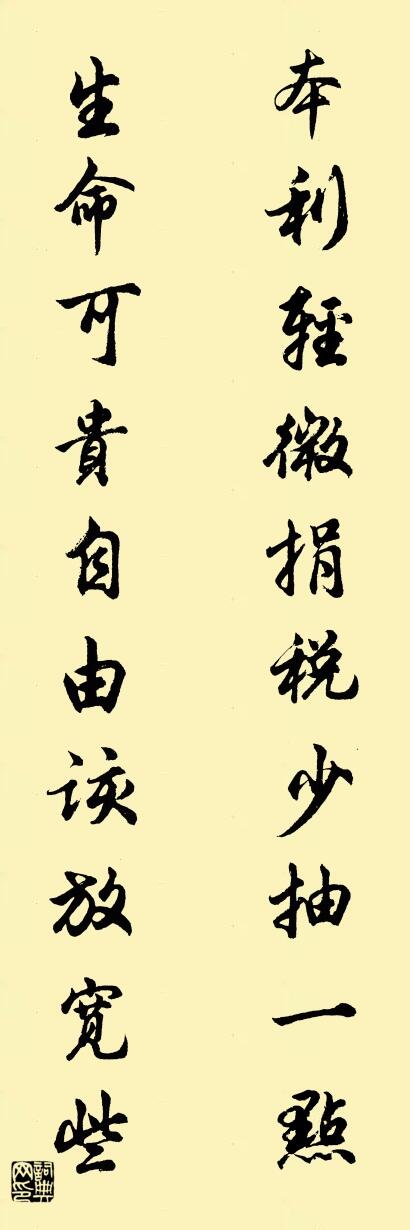 本利輕微捐税少抽一點
生命可貴自由該放寬些
詞典网印